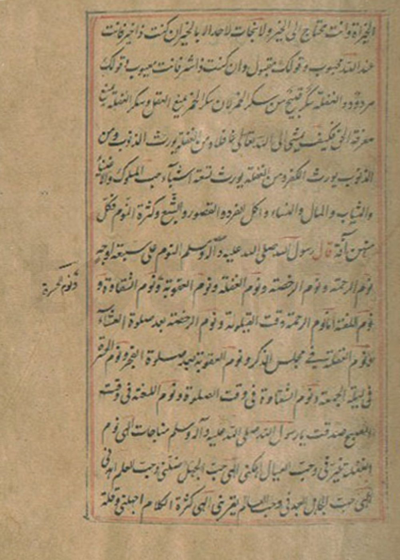 الخيرانة وانت محتاج الى الخير ولا نجات لاحد الا بالخير ان كنت ذا خير فانت
عند الله محبوب وقولك مقبول وان كنت ذا شر فانت معيوب وقولك
مردود و الغفلة سكر قبيح من سكر الخمر لان سكر الخمر يمنع العقل وسكر الغفلة يمنع
معرفة الحق فكيف يمشى الى الله تعالى غافلا ومن الغفلة يورث الذنوب ومن
الذنوب يورث الكفر ومن الغفلة يورث تسعة اشياء حب الملوك
والثياب والمال والنساء واكل المفرد و القصور والشبع وكثرة النوم فكل
منهن آفة قال رسول الله صلى الله عليه وآله وسلم النوم على سبعة اوجه
نوم الرحمة ونوم الرخصة ونوم الغفلة ونوم العقوبة ونوم الشقاوة و
نوم اللعنة اما نوم الرحمة وقت القيلولة ونوم الرخصة بعد صلوة العشاء
ونوم الغفلة في مجلس الذكر ونوم العقوبة بعد صلوة الفجر ونوم
في ليلة الجمعة ونوم الشقاوة في وقت الصلوة ونوم اللعنة في وقت
الصبح صدقت يا رسول الله صلى الله عليه وآله وسلم مناجات الهى نوم
الغفلة غيرنى وحب العيال اهلكنى الهى حب الجهل ضلنى وحب العلم اهدنى
الهى حب الجاهل ابعدنى وحب العالم يقربنى الهى كثرة الكلام وقلة
ونوم حسرة